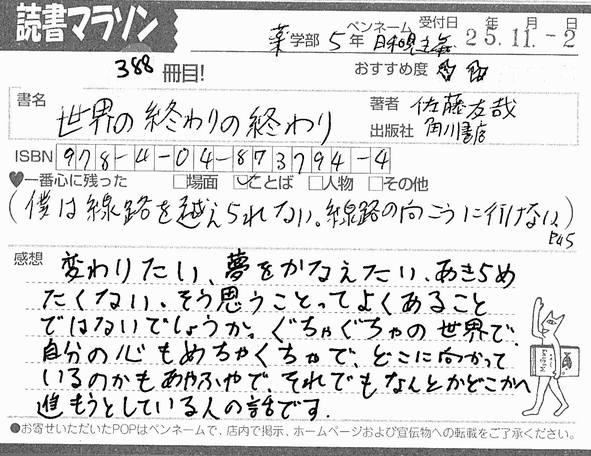 読書マラソン
薬学部 5年 ペンネーム 日和見主義 受付日 年 月 日 25.11.-2
388冊目! おすすめ度
書名 世界の終わりの終わり 著者 佐藤友哉
出版社 角川書店
ISBN 978-4-04-873794-4
♥一番心に残った □場面 ☑ことば □人物 □その他
(僕は線路を越えられない。線路の向こうに行けない)
P45
感想 変わりたい、夢をかなえたい、あきらめ
たくない。そう思うことってよくあること
ではないでしょうか。ぐちゃぐちゃの世界で、
自分の心もめちゃくちゃで、どこに向かって
いるのかもあやふやで、それでもなんとかどこかへ
進もうとしている人の話です.
●お寄せいただいたPOPはペンネームで、店内で掲示、ホームページおよび宣伝物への転載をご了承ください。